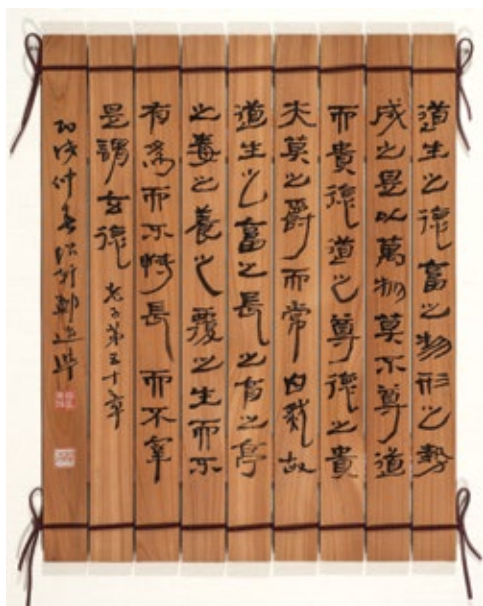 道生之德畜之物形之勢
成之是以萬物莫不尊道
而貴德道之尊德之貴
夫莫之爵而常自然故
道生之畜之長之育之亭
之毒之養之覆之生而不
有為而不恃長而不宰
是謂玄德 老子第五十章
丙戌仲春